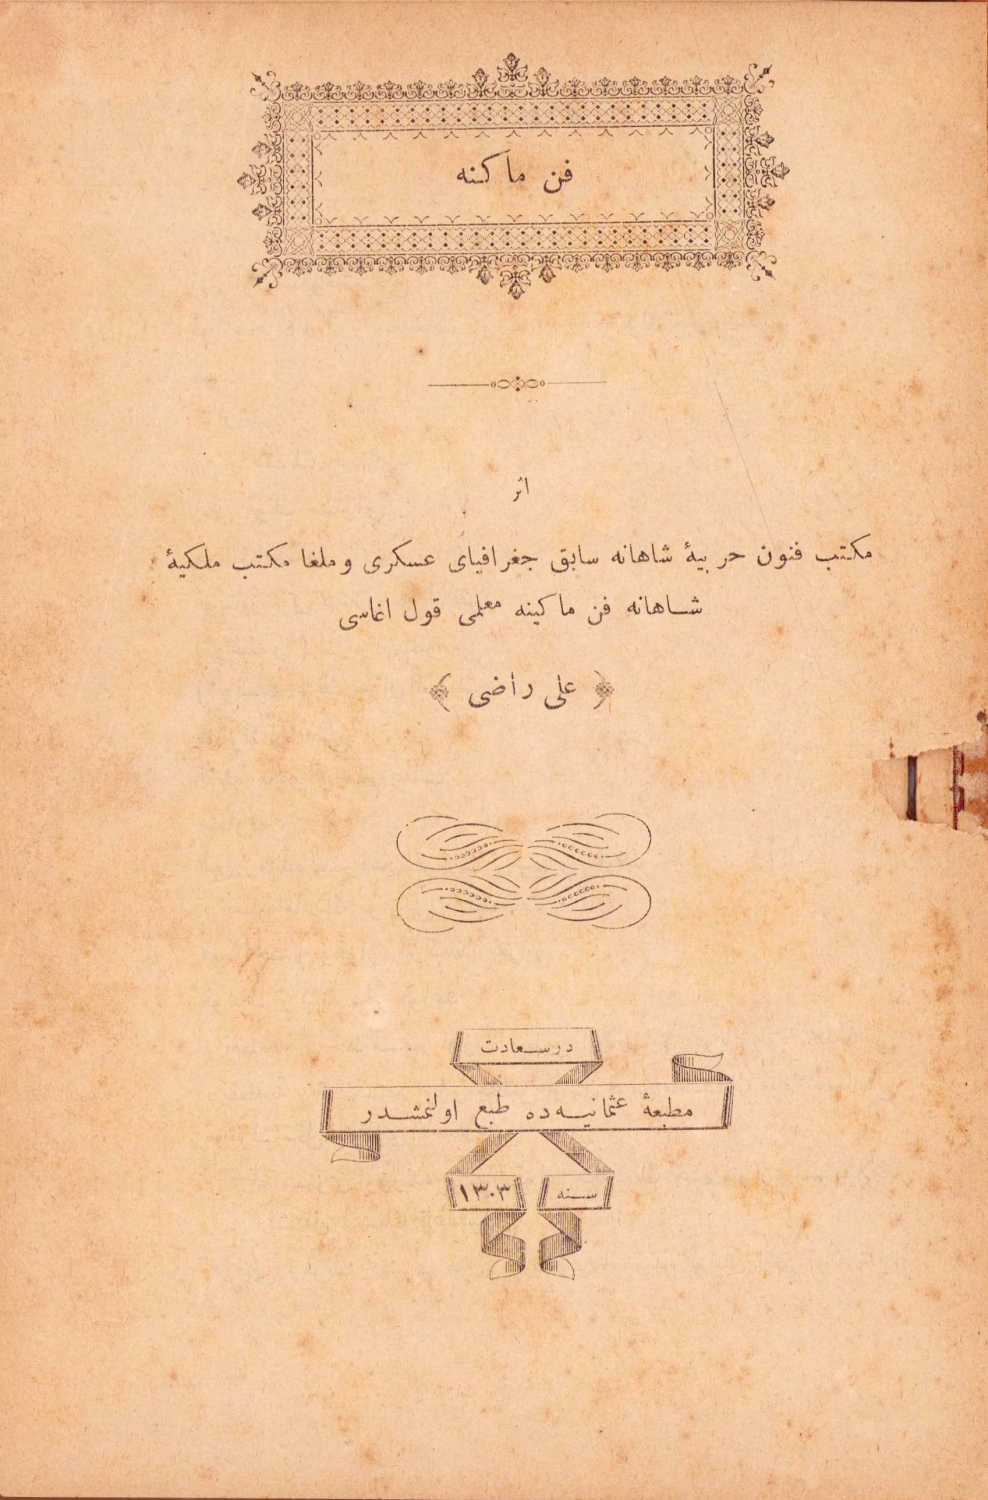 فن ماكنه
اثر
مكتب فنون حربيۀ شاهانه سابق جغرافياى عسكرى وملغا مكتب ملكيۀ
شاهانه فن ماكينه معلمى قول اغاسى
﴿ على راضى ﴾
درسعادت
مطبعۀ عثمانيه‌ده طبع اولنمشدر
سنه ١٣٠٣